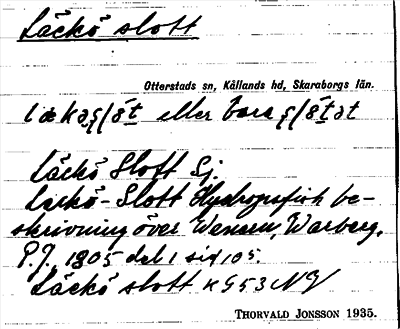 Läckö slott
Otterstads sn, Kållands hd, Skaraborgs län.
eller bara
Läckö Slott Sj.
Leckö-Slott Hydrografisk be-
skrivning över Wenern, Warberg,
P.J. 1805 del 1 sid 105.
Läckö slott KG53NV
THORVALD JONSSON 1935.